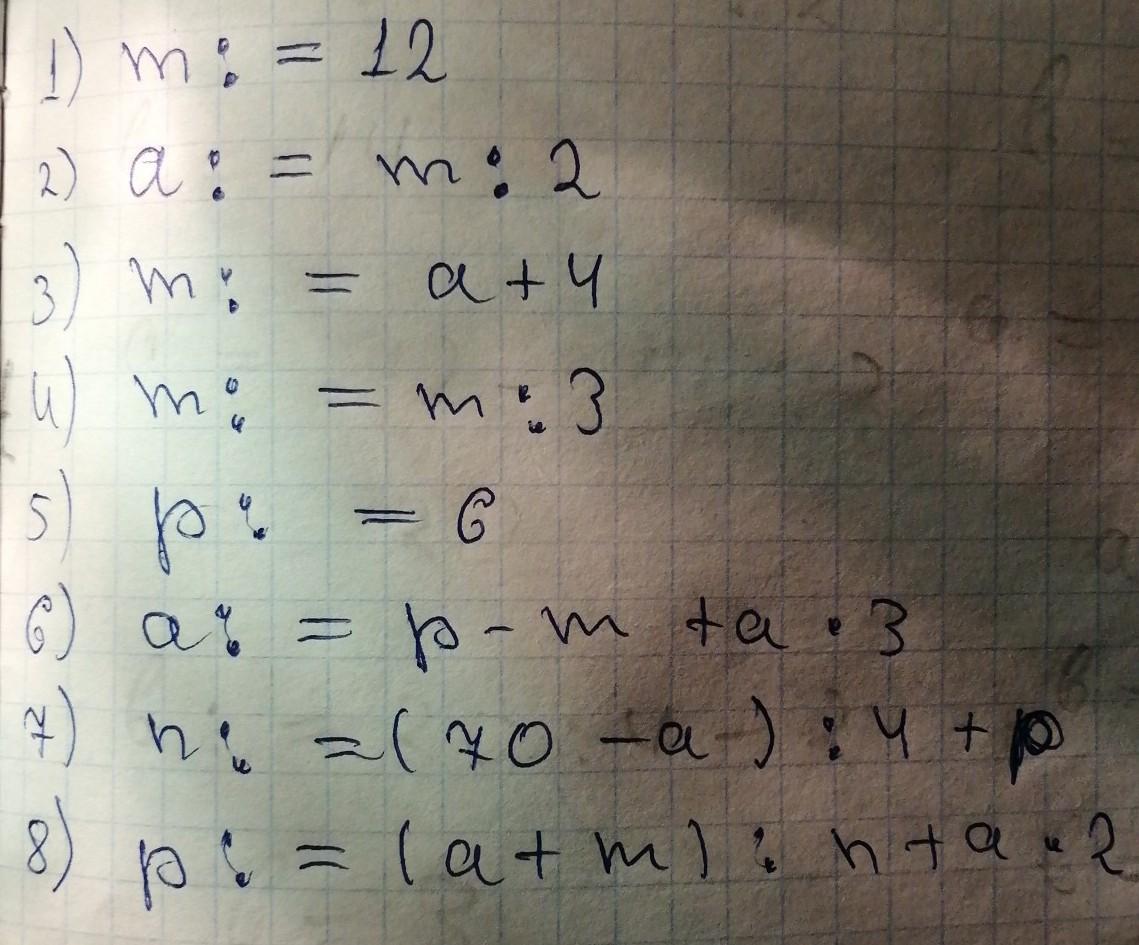 1) m : = 12
2) a : = m : 2
3) m : = a + 4
4) m : = m : 3
5) p : = 6
6) a : = p - m + a · 3
7) n : = ( 70 - a ) : 4 + p
8) p : = ( a + m ) : n + a · 2